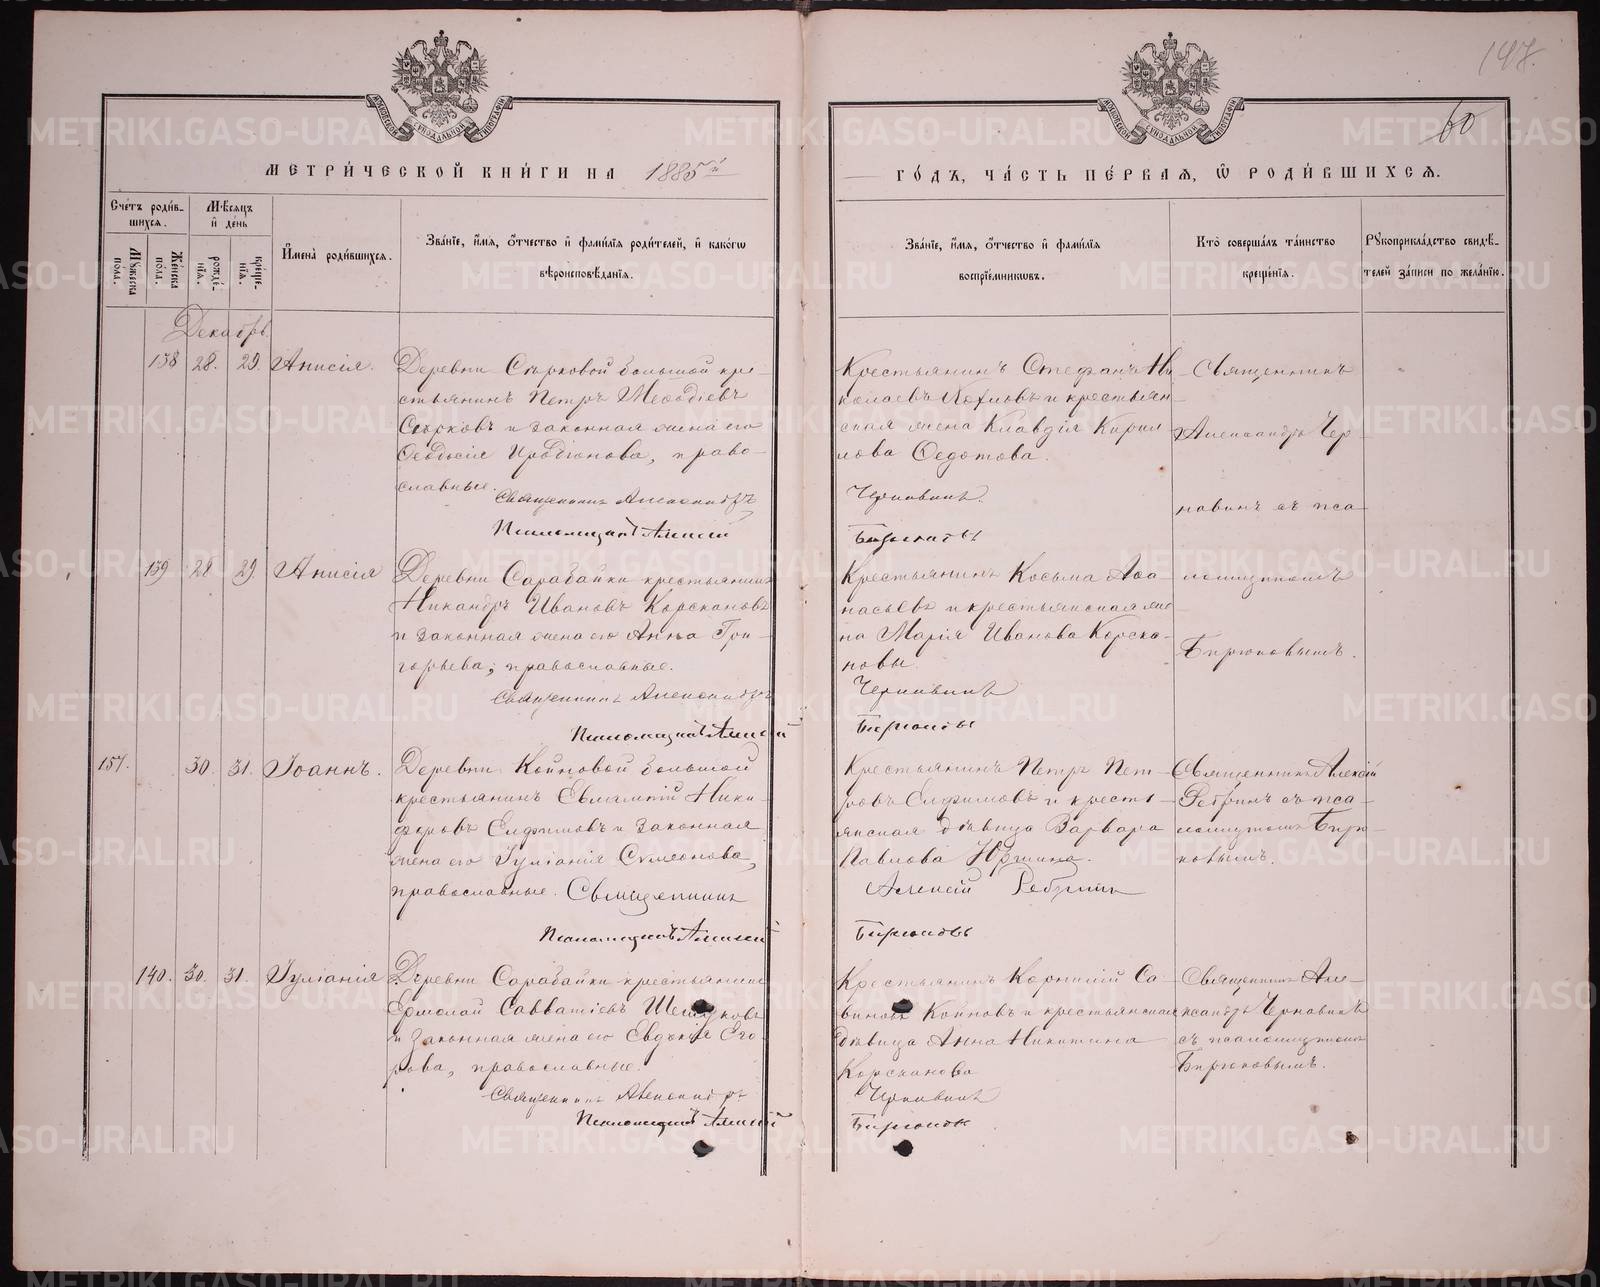 147.
60
МЕТРИ́ЧЕСКОЙ КНИ́ГИ НА 1885й
ГО́ДЪ, ЧА́СТЬ ПЕ́РВАЯ, Ѡ РОДИ́ВШИХСЯ.
Сче́тъ роди́в-
шихся.
Мѣ́сяцъ
и де́нь
Му́жеска пола.
Же́нска пола.
рожде́-
нїя.
креще́-
нїя.
И҆мена̀ роди́вшихся.
Зва́нїе, и҆́мя, ѻ҆́тчество и҆ фами́лїя роди́телей, и҆ како́гѡ
вѣроисповѣ́данїя.
Зва́нїе, и҆́мя, ѻ҆́тчество и҆ фами́лїя
воспрїе́мникѡвъ.
Кто̀ соверша́лъ та́инство
креще́нїя.
Рꙋкоприкла́дство свидѣ́-
телей за́писи по жела́нїю.
Декабрь
138 28. 29. Анисія.
Деревни Сѣрковой большой кре-
стьянинъ Петръ Меѳодіевъ
Сѣрковъ и законная жена его
Ѳеодосія Иродіонова, право-
славные.
Священникъ Александръ
Псаломщикъ Алексій
Крестьянинъ Стефанъ Ни
колаевъ и крестьян-
ская жена Клавдія Кирил
лова Ѳедотова.
Чернавинъ
Бирюковъ
Священникъ
Александръ Чер
навинъ съ пса
ломщикомъ
Бирюковымъ.
139 28 29. Анисія
Деревни Сарабайки крестьянинъ
Никандръ Ивановъ Корскановъ
и законная жена его Анна Гри-
горьева, православные.
Священникъ Александръ
Псаломщикъ Алексій
Крестьянинъ Косьма Аѳа
насьевъ и крестьянская же
на Марія Иванова Корска-
новы.
Чернавинъ
Бирюковъ
157. 30. 31. Іоаннъ.
Деревни Койновой большой
крестьянинъ Евлампій Ники-
форовъ Елфимовъ и законная
жена его Іуліанія Симеонова,
православные. Священникъ
Псаломщикъ Алексій
Крестьянинъ Петръ Пет-
ровъ Елфимовъ и кресть-
янская дѣвица Варвара
Павлова
Алексій Ребринъ
Бирюковъ
Священникъ Алексій
Ребринъ съ пса-
ломщикомъ Бирю-
ковымъ.
140. 30. 31. Іуліанія
Деревни Сарабайки крестьянинъ
Ермолай Савватіевъ
и законная жена его Евдокія Его-
рова, православные.
Священникъ Александръ
Псаломщикъ Алексій
Крестьянинъ Корнилій Са-
виновъ Койновъ и крестьянская
дѣвица Анна Никитина
Корсканова
Чернавинъ
Бирюковъ
Священникъ Але-
ксандръ Чернавинъ
съ псаломщикомъ
Бирюковымъ.
METRIKI.GASO-URAL.RU